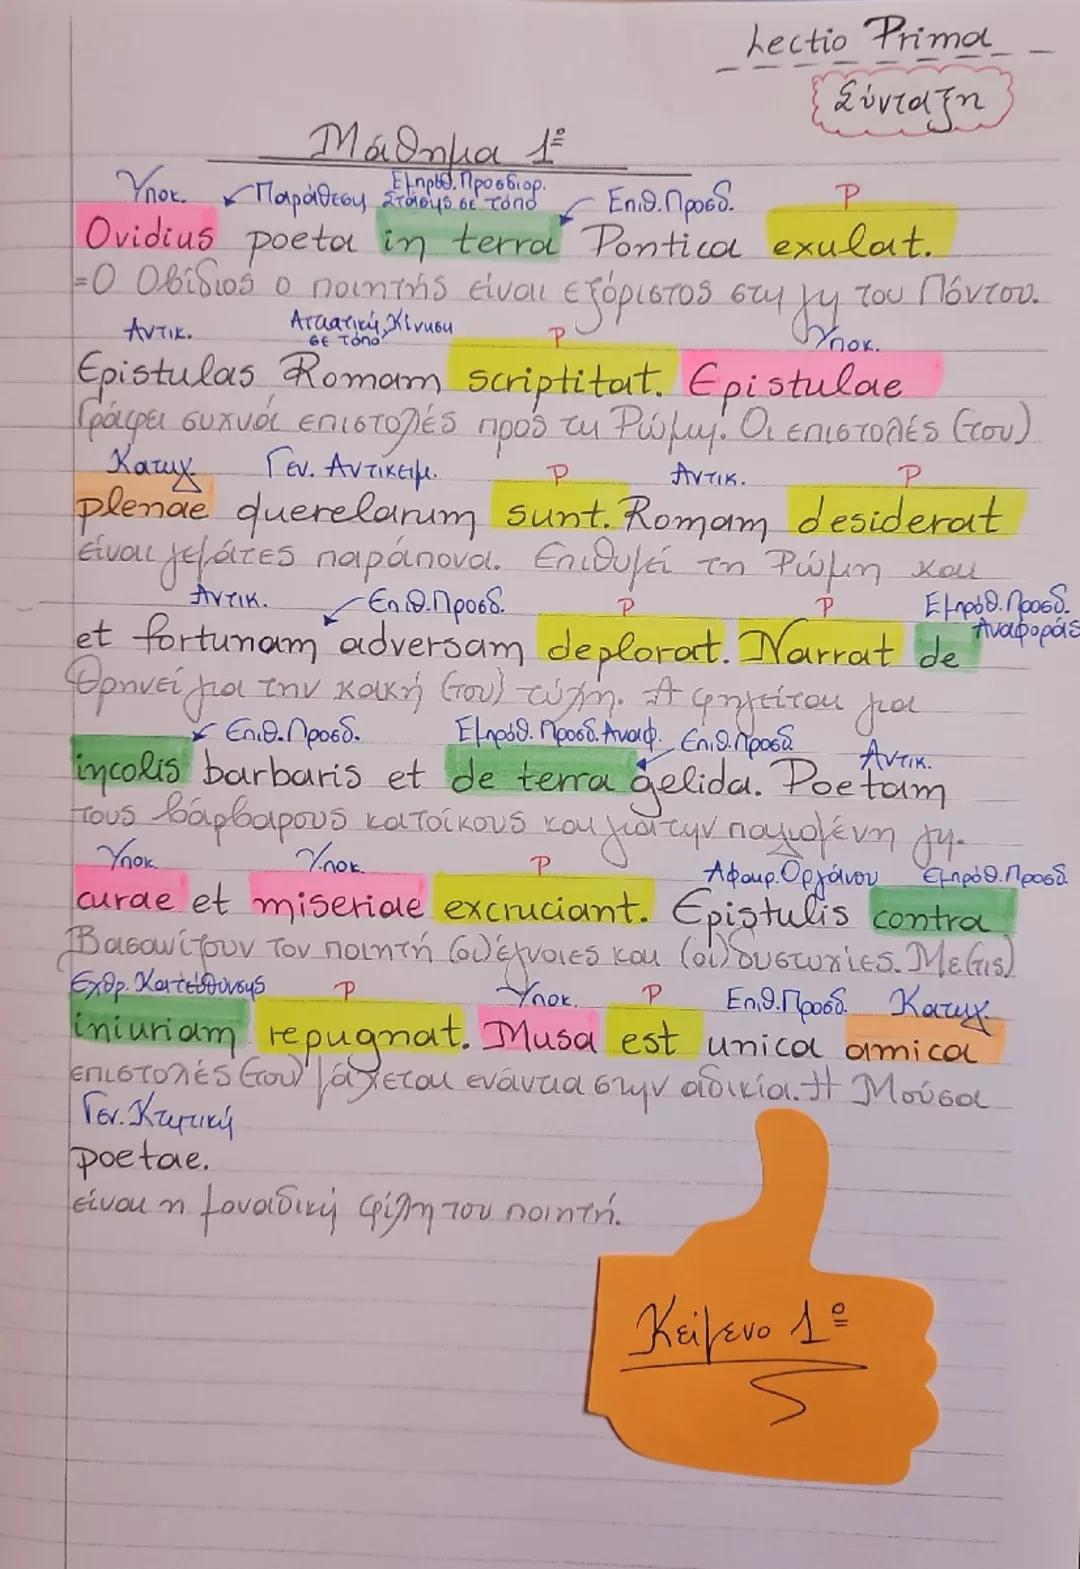 Lectio Prima
Σύνταξη
Μάθημα 1º
Υποκ. Παράθεση Εμπρόθ. Προσδιορ. Στάσης σε τόπο Επιθ. Προσδ. Ρ
Ovidius poeta in terra Pontica exulat.
=Ο Οβίδιος ο ποιητής είναι εξόριστος στη γη του Πόντου.
Αντικ. Αιτιατική Κίνηση σε τόπο Ρ Υποκ.
Epistulas Romam scriptitat. Epistulae
Γράφει συχνά επιστολές προς τη Ρώμη. Οι επιστολές (του)
Κατηγ. Γεν. Αντικειμ. Ρ Αντικ. Ρ
plenae querelarum sunt. Romam desiderat
είναι γεμάτες παράπονα. Επιθυμεί τη Ρώμη και
Αντικ. Επιθ. Προσδ. Ρ Ρ Εμπρόθ. Προσδ. Αναφοράς
et fortunam adversam deplorat. Narrat de
Θρηνεί για την κακή (του) τύχη. Αφηγείται για
Επιθ. Προσδ. Εμπρόθ. Προσδ. Αναφ. Επιθ. Προσδ. Αντικ.
incolis barbaris et de terra gelida. Poetam
τους βάρβαρους κατοίκους και για την παγωμένη γη.
Υποκ. Υποκ. Ρ Αφαιρ. Οργάνου Εμπρόθ. Προσδ
curae et miseriae excruciant. Epistulis contra
Βασανίζουν τον ποιητή (οι) έγνοιες και (οι) δυστυχίες. Με (τις)
Εχθρ. Κατεύθυνσης Ρ Υποκ. Ρ Επιθ. Προσδ. Κατηγ.
iniuriam repugnat. Musa est unica amica
επιστολές (του) μάχεται ενάντια στην αδικία. Η Μούσα
Γεν. Κτητική
poetae.
είναι η μοναδική φίλη του ποιητή.
Κείμενο 1º